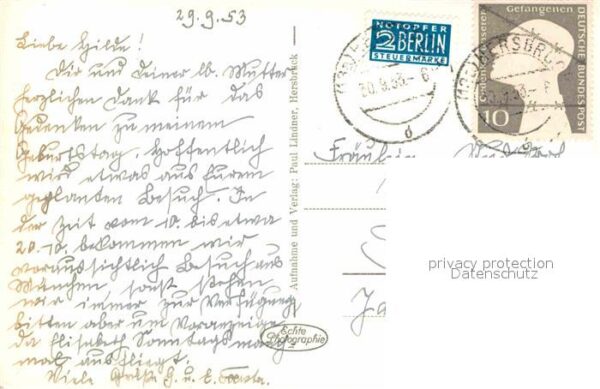 29.9.53
Liebe Hilde!
Dir und Deiner lb. Mutter
herzlichen Dank für das
Gedenken zu meinem
Geburtstag. Hoffentlich
wird etwas aus Eurem
geplanten Besuch. In
der Zeit vom 10. bis etwa
20.10. bekommen wir
voraussichtlich Besuch aus
München, sonst stehen
wir immer zur Verfügung,
bitten aber um Voranzeige
da Elisabeth Sonntags
mal ausfliegt.
Viele Grüße G. u. E.
Aufnahme und Verlag: Paul Lindner, Hersbruck
Echte
Photographie
NOTOPFER
2 BERLIN
STEUERMARKE
Gedenket unserer Gefangenen
DEUTSCHE BUNDESPOST
10
HERSBRUCK
Fräulein
privacy protection
Datenschutz